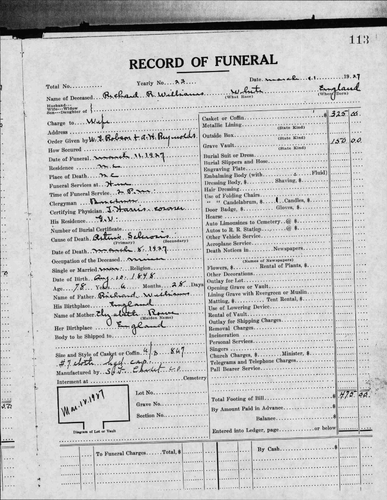 113
RECORD OF FUNERAL
Total No. Yearly No. 23 Date March 1927
Name of Deceased Richard R. Williams White England
(What Race) (Where Born)
Husband—
Wife—Widow
Son—Daughter of
Charge to Wife
Address
Order Given by W. E. Robson & A. H. Reynolds
How Secured
Date of Funeral March 11, 1927
Residence N.C.
Place of Death N.C.
Funeral Services at Home
Time of Funeral Service 2 P.M.
Clergyman
Certifying Physician J. Harris coroner
His Residence G.V.
Number of Burial Certificate
Cause of Death Sclerosis
(Primary) (Secondary)
Date of Death March 8, 1927
Occupation of the Deceased miner
Single or Married mar. Religion
Date of Birth Aug. 10, 1848
Age 78 Years 6 Months 28 Days
Name of Father Richard Williams
His Birthplace England
Name of Mother Elizabeth Rowe
(Maiden Name)
Her Birthplace England
Body to be Shipped to
Size and Style of Casket or Coffin 6/3 847
Manufactured by
Interment at Cemetery
Lot No.
Grave No.
Section No.
Mar. 1927
Diagram of Lot or Vault
Casket or Coffin $ 325 00
Metallic Lining
(State Kind)
Outside Box
(State Kind)
Grave Vault 150 00
(State Kind)
Burial Suit or Dress
Burial Slippers and Hose
Engraving Plate
Embalming Body (with Fluid)
Dressing Body, $ Shaving, $
Hair Dressing
Use of Folding Chairs
" " Candelabrum, $ Candles, $
Door Badge, $ Gloves, $
Hearse
Auto Limousines to Cemetery @ $
Autos to R. R. Station @ $
Other Vehicle Service
Aeroplane Service
Death Notices in Newspapers
(Names of Newspapers)
Flowers, $ Rental of Plants, $
Other Decorations
Outlay for Lot
Opening Grave or Vault
Lining Grave with Evergreen or Muslin
Matting, $ Tent Rental, $
Use of Lowering Device
Rental of Vault
Outlay for Shipping Charges
Removal Charges
Incineration
Personal Services
Singers
Church Charges, $ Minister, $
Telegrams and Telephone Charges
Pall Bearer Service
Total Footing of Bill $ 475 00
By Amount Paid in Advance
Balance
Entered into Ledger, page or below
To Funeral Charges Total, $
By Cash $